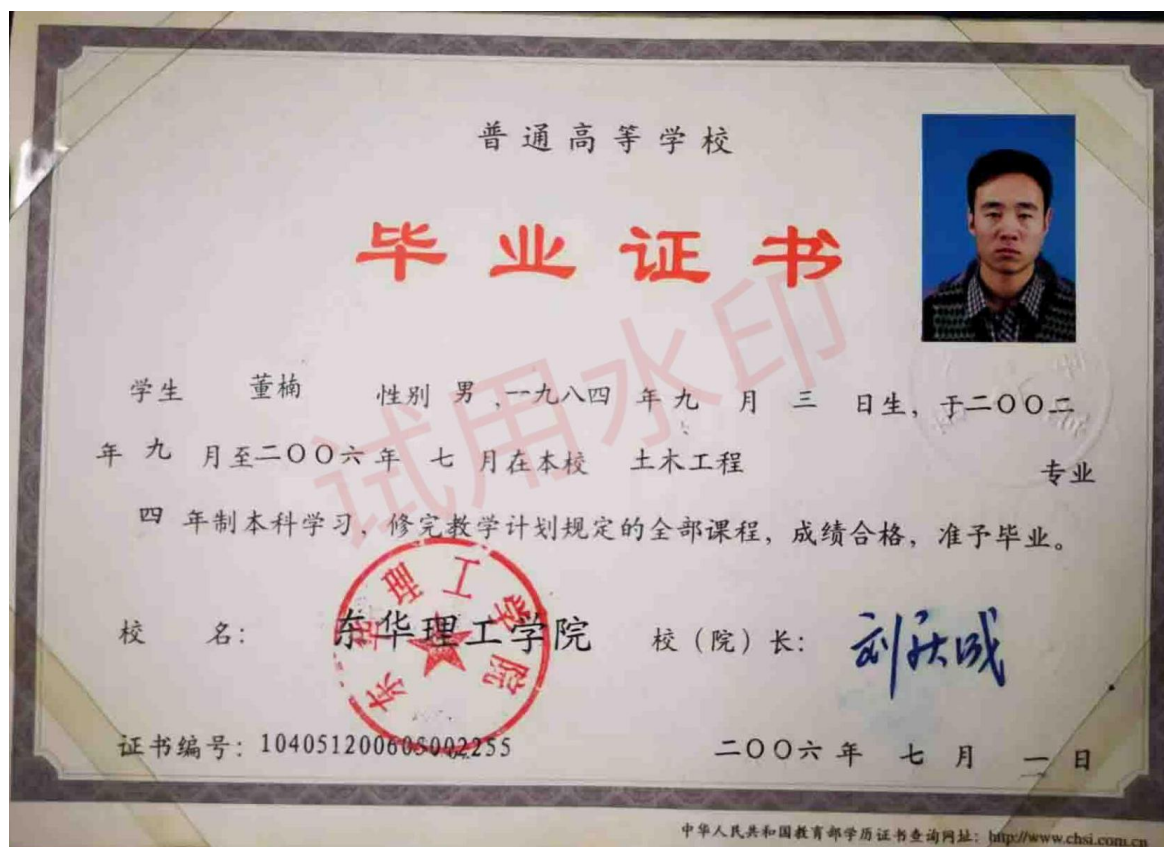 普通高等学校
毕业证书
学生 董楠 性别 男 、一九八四 年 九 月 三 日生，于二〇〇二
年 九 月至二〇〇六年 七 月在本校 土木工程 专业
四 年制本科学习，修完教学计划规定的全部课程，成绩合格，准予毕业。
校 名： 东华理工学院 校（院）长： 刘庆成
东华理工学院
证书编号：104051200605002255 二〇〇六年 七 月 一 日
中华人民共和国教育部学历证书查询网址：http://www.chsi.com.cn
试用水印